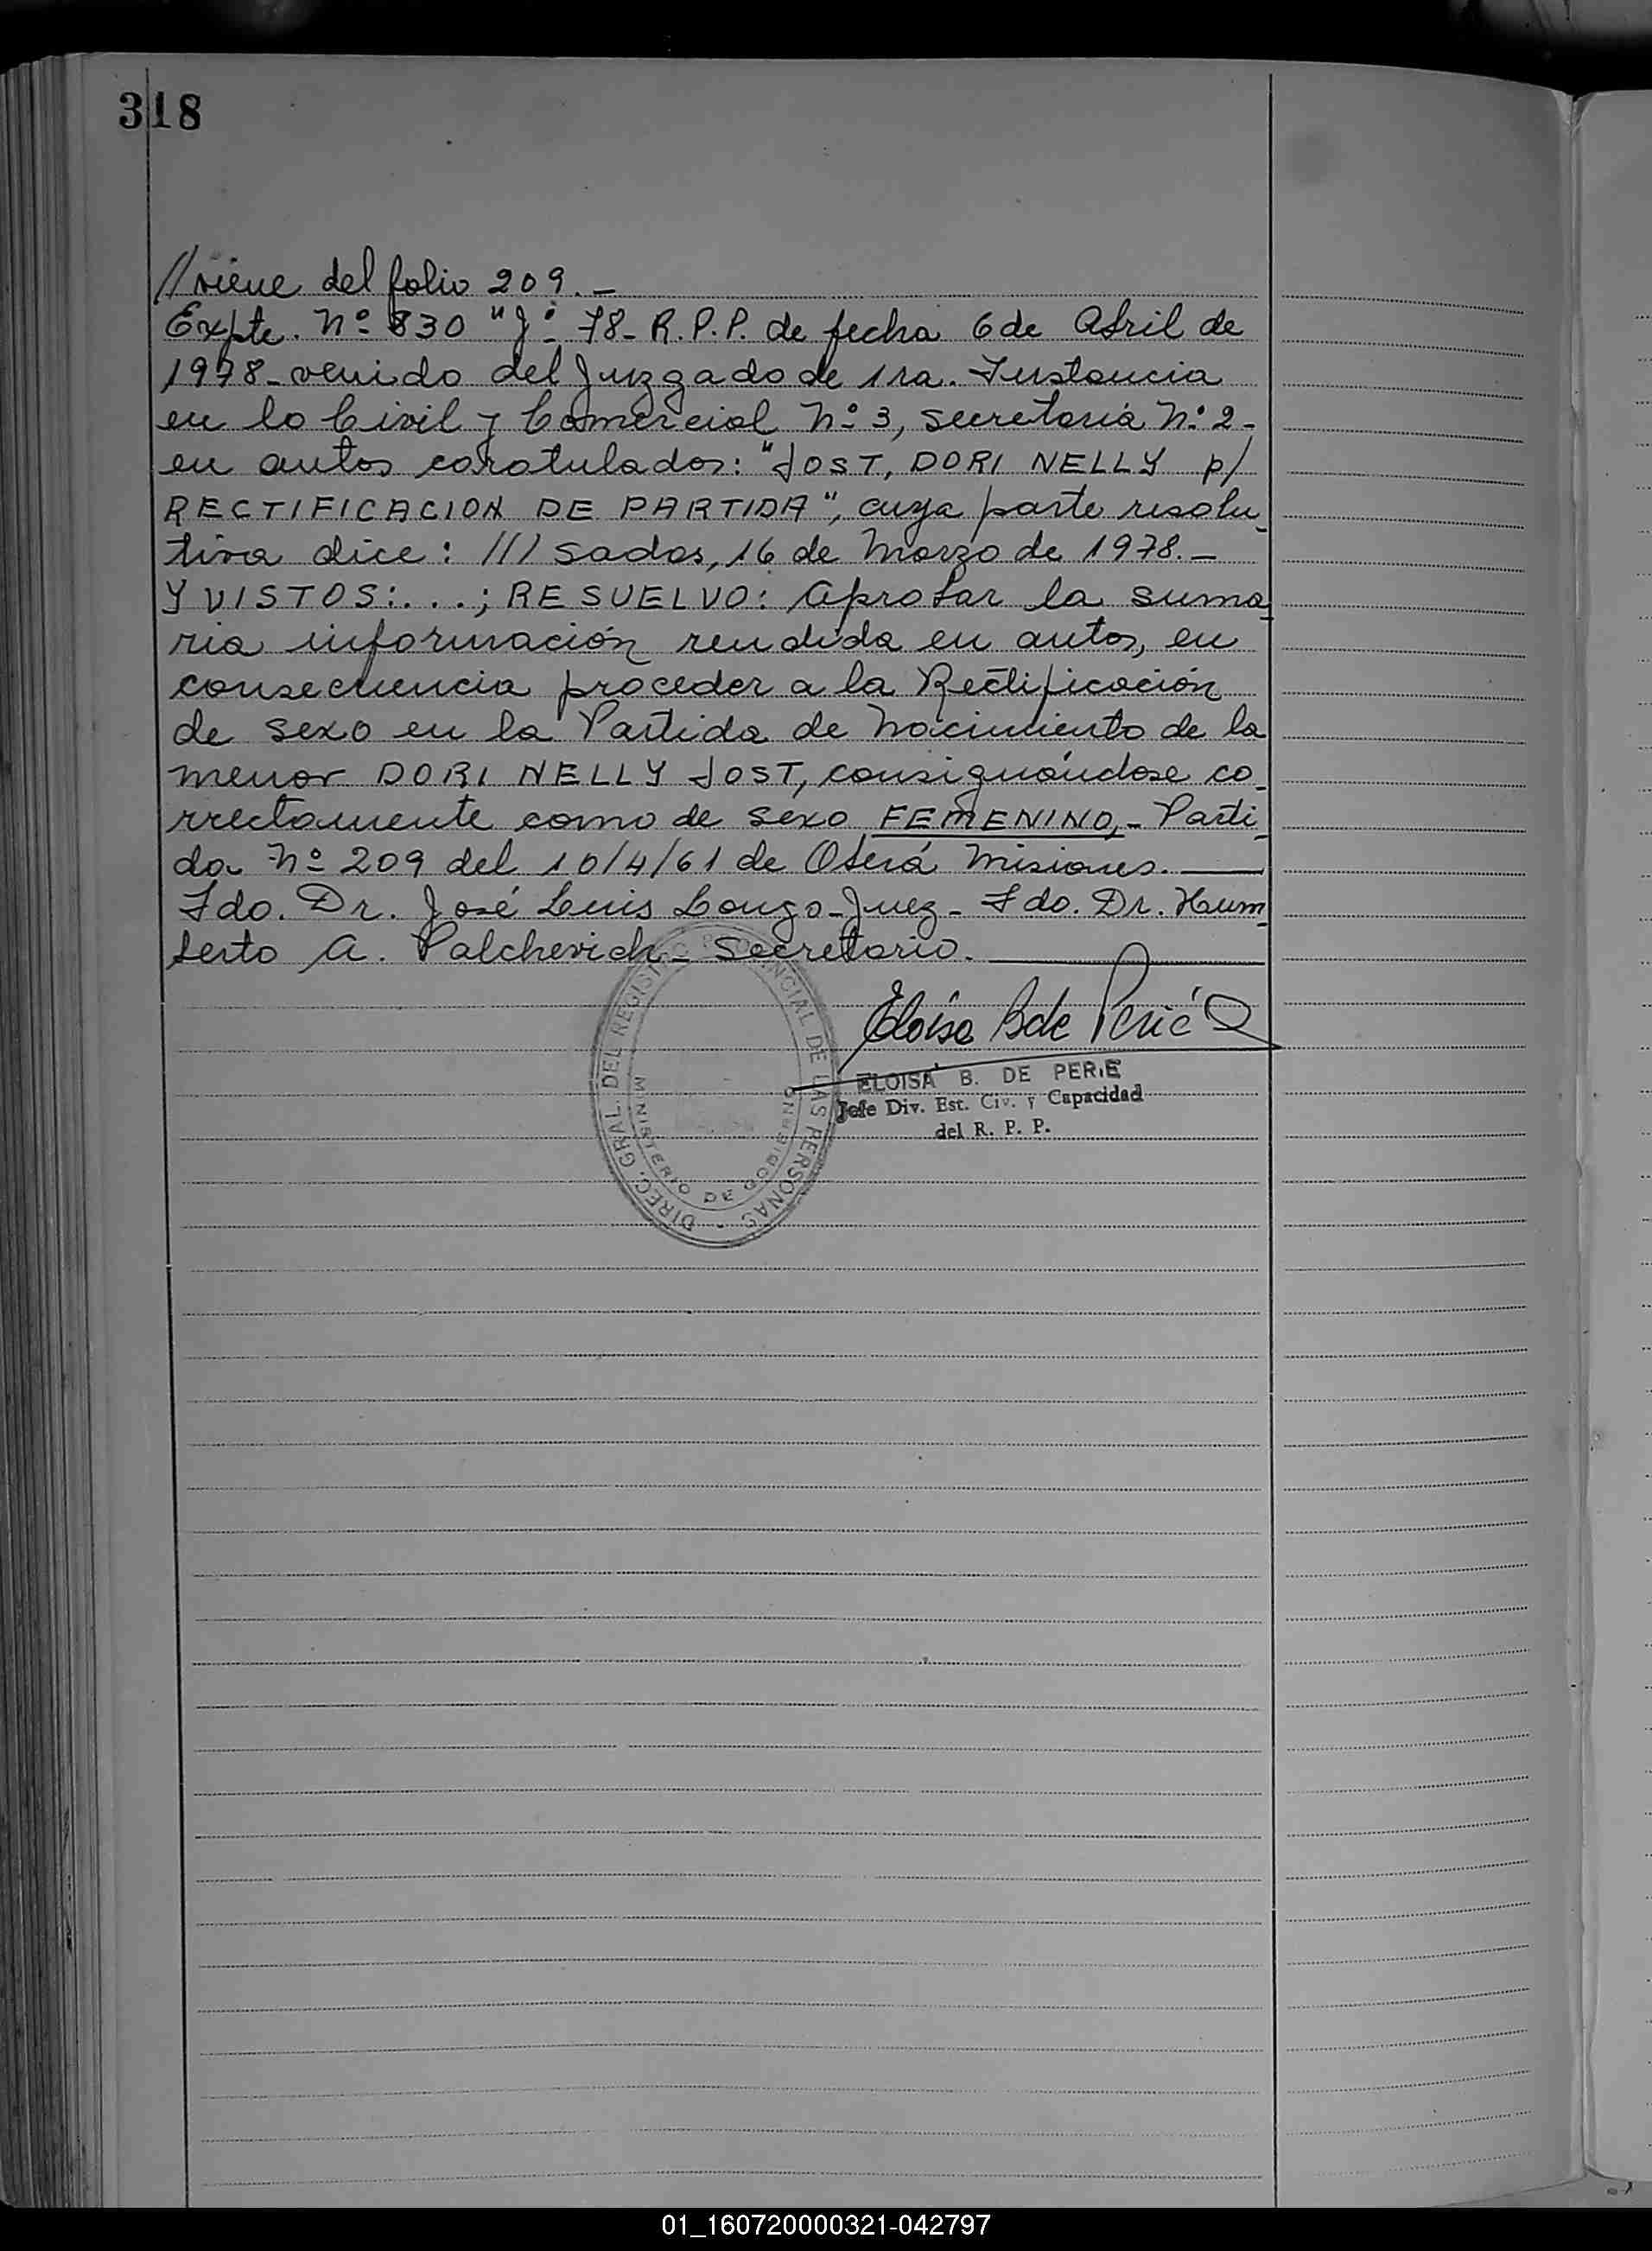 318
//viene del folio 209.-
Expte. Nº 830 "J" 78- R.P.P. de fecha 6 de Abril de
1978- venido del Juzgado de 1ra. Instancia
en lo Civil y Comercial Nº 3, secretaría Nº 2-
en autos caratulados: "JOST, DORI NELLY p/
RECTIFICACION DE PARTIDA", cuya parte resolu-
tiva dice: /// sadas, 16 de Marzo de 1978.-
Y VISTOS:...; RESUELVO: Aprobar la suma-
ria información rendida en autos, en
consecuencia proceder a la Rectificación
de sexo en la Partida de Nacimiento de la
menor DORI NELLY JOST, consignándose co-
rrectamente como de sexo FEMENINO,- Parti-
da Nº 209 del 10/4/61 de Oberá Misiones.
Fdo. Dr. José Luis Longo-Juez- Fdo. Dr. Hum-
berto A. Palchevich- Secretario.
Eloisa B de Perié
ELOISA B. DE PERIE
Jefe Div. Est. Civ. y Capacidad
del R. P. P.
DIREC. GRAL. DEL REGISTRO PROVINCIAL DE LAS PERSONAS -
MINISTERIO DE GOBIERNO
01_160720000321-042797